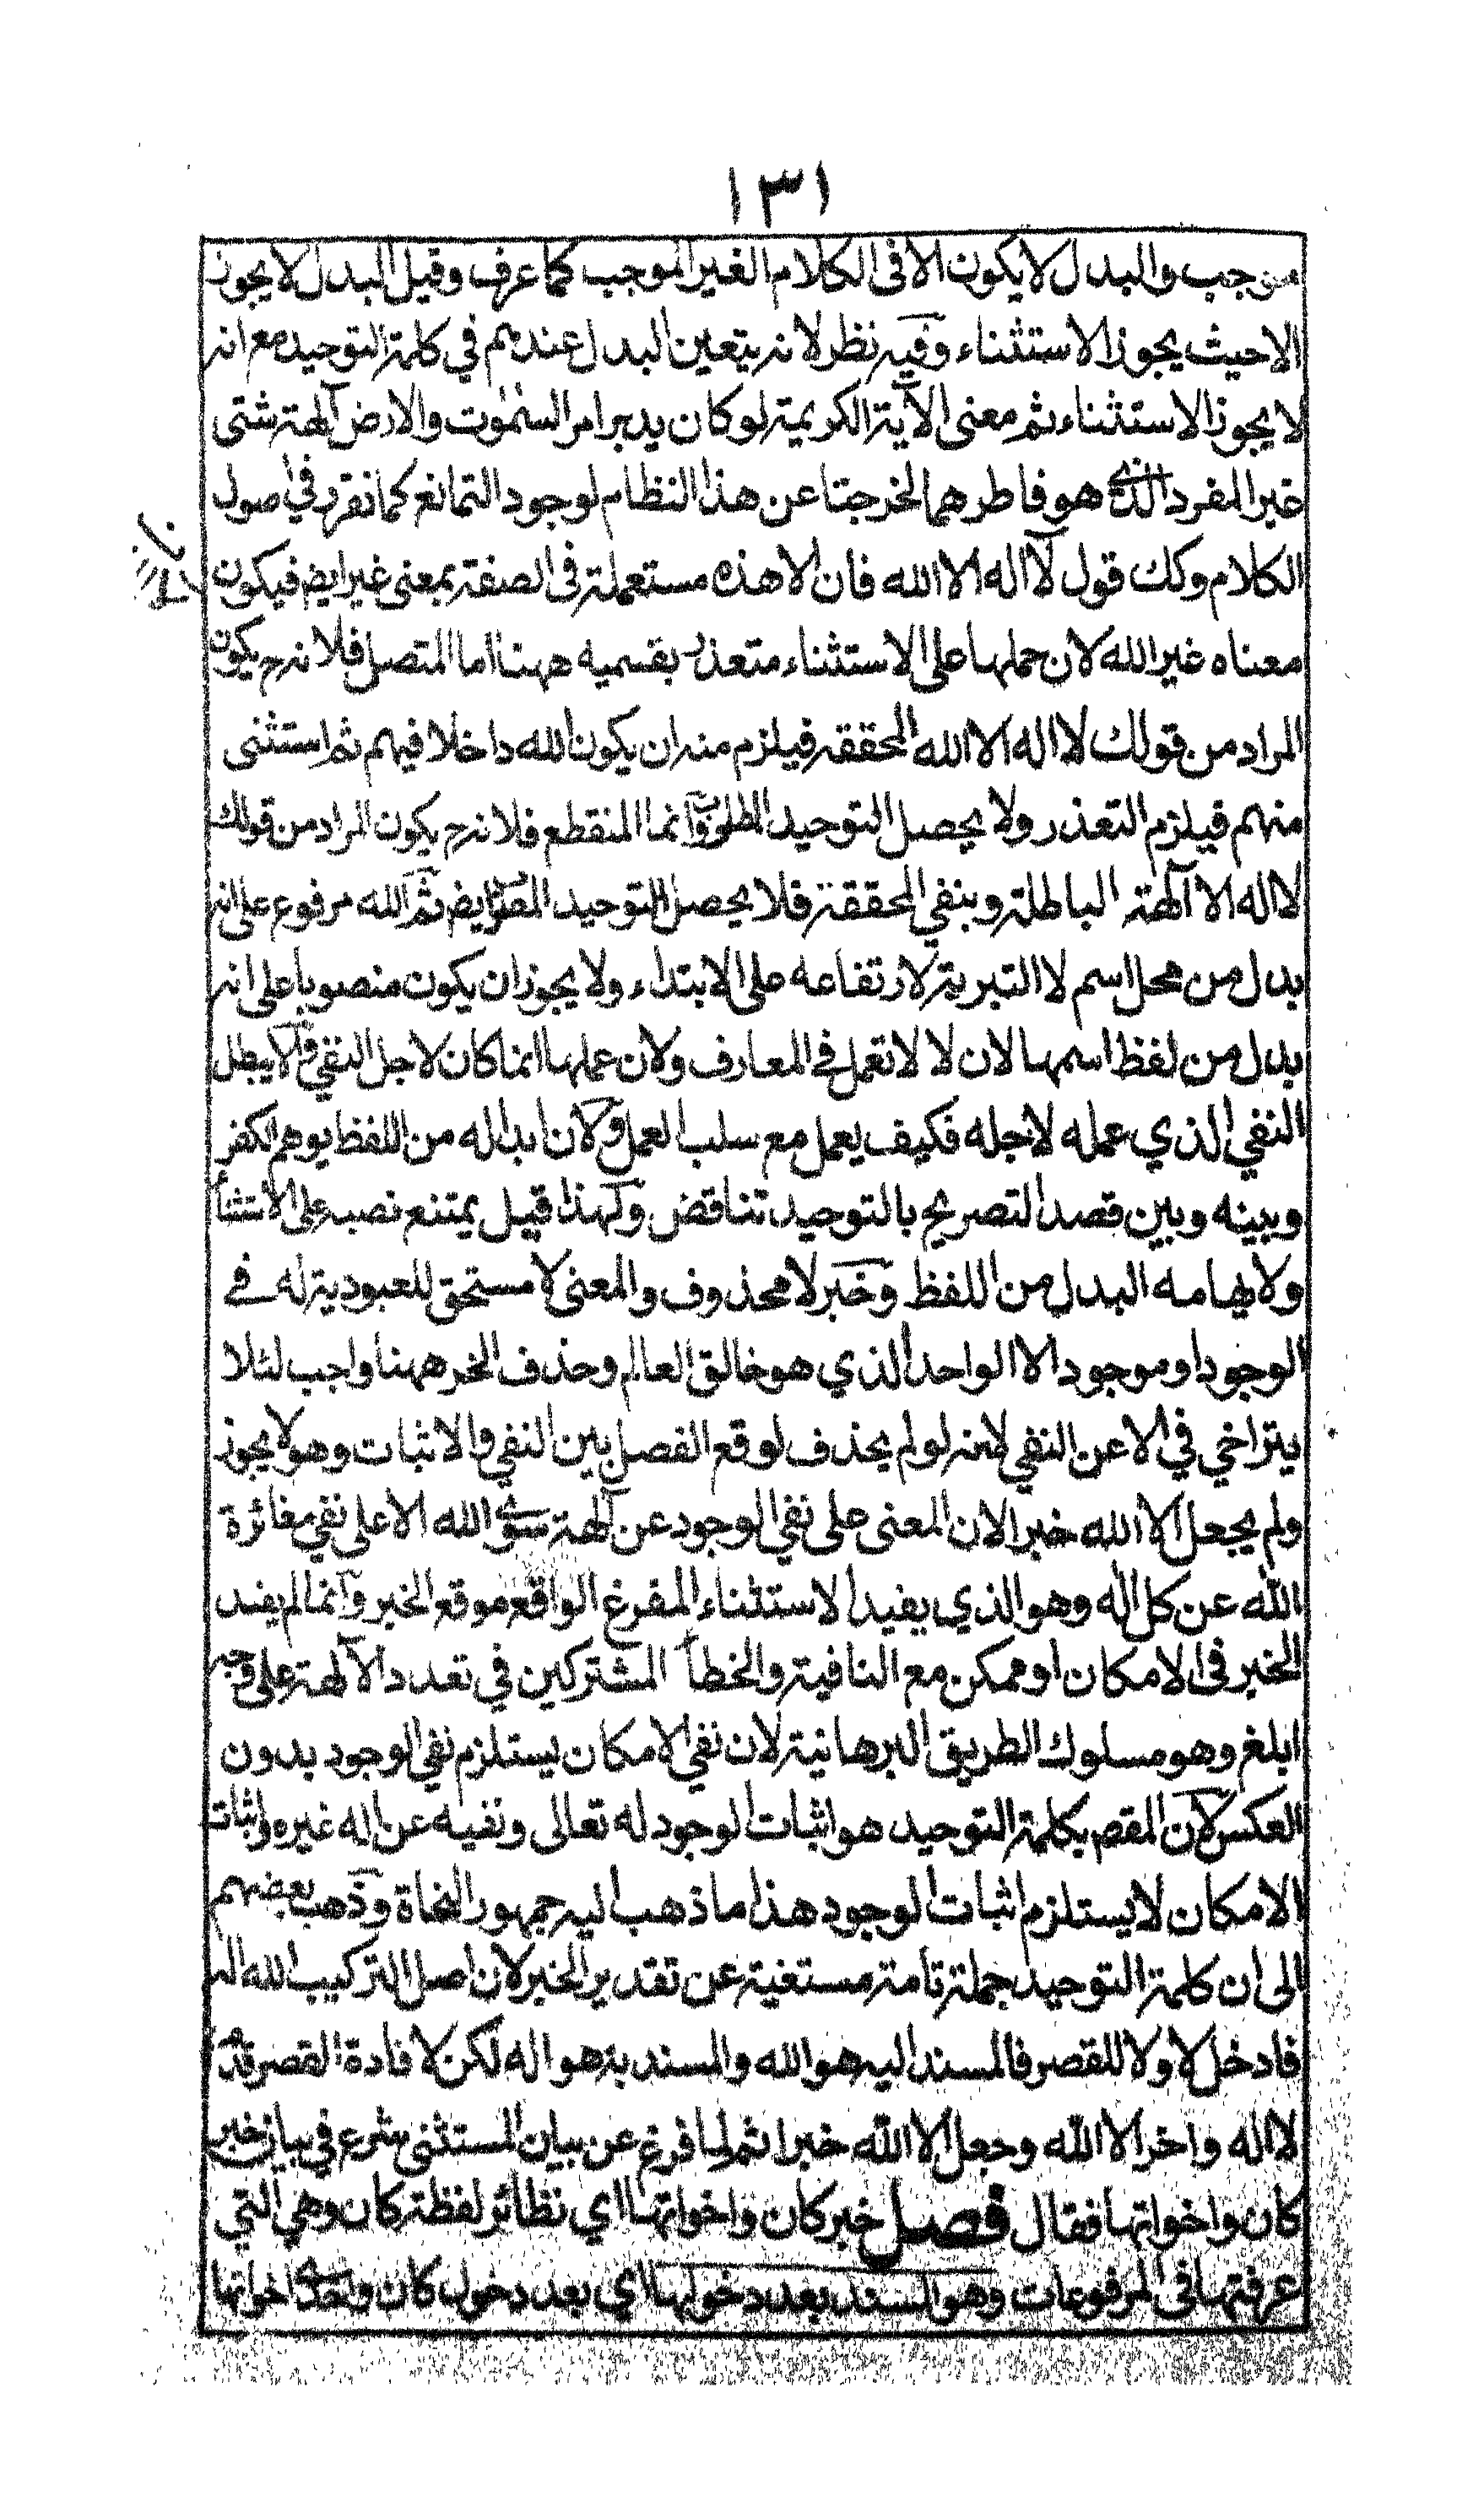 ١٣١
موجب والبدل لا يكون الا فى الكلام الغير الموجب كما عرف وقيل البدل لا يجوز
الا حيث يجوز الاستثناء وفيه نظر لانه يتعين البدل عندهم في كلمة التوحيد مع انه
لا يجوز الاستثناء ثم معنى الآية الكريمة لو كان يدبر امر السمٰوٰت والارض آلهة شتى
غير المفرد الذي هو فاطرهما لخرجتا عن هذا النظام لوجود التمانع كما تقرر في اصول
الكلام وكك قول لا اله الا الله فان الا هذه مستعملة فى الصفة بمعنى غير ايض فيكون
معناه غير الله لان حملها على الاستثناء متعذر بقسميه ههنا اما المتصل فلانه ح يكون
المراد من قولك لا اله الا الله المحققه فيلزم منه ان يكون الله داخلا فيهم ثم استثنى
منهم فيلزم التعذر ولا يحصل التوحيد المطلوب وانما المنقطع فلانه ح يكون المراد من قولك
لا اله الا آلهة الباطلة وبنفي المحققة فلا يحصل التوحيد المقص ايض ثم الله مرفوع على انه
بدل من محل اسم لا التبرية لارتفاعه على الابتداء ولا يجوز ان يكون منصوبا على انه
بدل من لفظ اسمها لان لا لا تعمل في المعارف ولان عملها انما كان لاجل النفي والا يبطل
النفي الذي عمله لاجله فكيف يعمل مع سلب العمل ولان ابداله من اللفظ يوهم الكفر
وبينه وبين قصد التصريح بالتوحيد تناقض ولهذا قيل يمتنع نصبه على الاستثناء
ولايهامه البدل من اللفظ وخبر لا محذوف والمعنى لا مستحق للعبودية له في
الوجود او موجود الا الواحد الذي هو خالق العالم وحذف الخبر ههنا واجب لئلا
يتراخي في الا عن النفي لانه لو لم يحذف لوقع الفصل بين النفي والاثبات وهو لا يجوز
ولم يجعل الا الله خبر الان المعنى على نفي الوجود عن آلهة سوى الله الا على نفي مغائرة
الله عن كل اله وهو الذي يفيد الاستثناء المفرغ الواقع موقع الخبر وانما لم يفيد
الخبر فى الامكان او ممكن مع النافية والخطأ المشتركين في تعدد الآلهة على وجه
ابلغ وهو مسلوك الطريق البرهانية لان نفي الامكان يستلزم نفي الوجود بدون
العكس لان المقصم بكلمة التوحيد هو اثبات الوجود له تعالى ونفيه عن اله غيره واثبات
الامكان لا يستلزم اثبات الوجود هذا ما ذهب اليه جمهور النحاة وذهب بعضهم
الى ان كلمة التوحيد جملة تامة مستغنية عن تقدير الخبر لان اصل التركيب الله اله
فادخل لا ولا للقصر فالمسند اليه هو الله والمسند به هو اله لكن لافادة القصر قدم
لا اله واخر الا الله وجعل الا الله خبرا ثم لما فرغ عن بيان المستثنى شرع في بيان خبر
كان واخواتها فقال فصل خبر كان واخواتها اي نظائر لفظة كان وهي التي
عرفتها فى المرفوعات وهو المسند بعد دخولها اي بعد دخول كان واحدى اخواتها